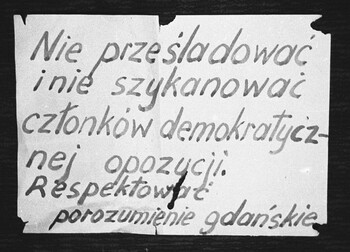 Nie prześladować
i nie szykanować
członków demokratycz-
nej opozycji.
Respektować
porozumienie gdańskie